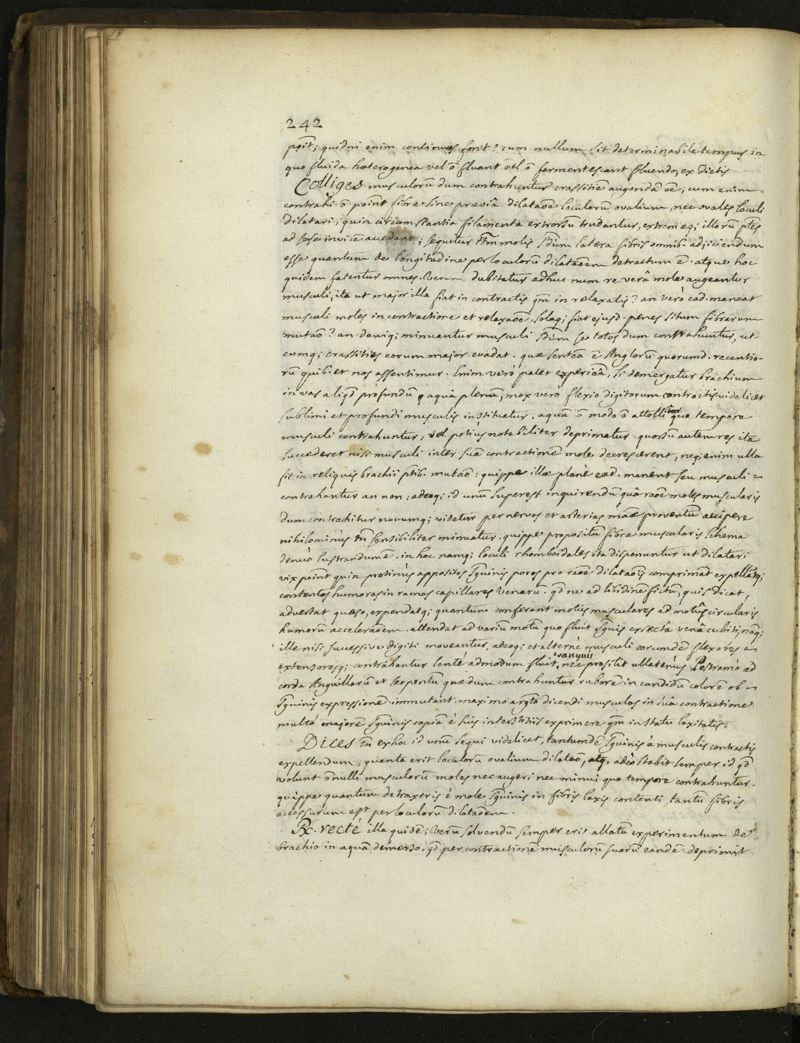 242
poit; quidni enim continuus foret? cum nullum sit determinabile tempus in
quo fluida heterogenea vel õ fluant vel õ fermentescant fluendo, ex dictis
Colliges musculorũ dum contrahuntur crassitiẽ augendã eẽ; cum enim
contrahi õ point fibræ sine præviâ dilataõe loculorũ ovalium, nec ovales loculi
dilatari; quin circumstantia filamenta extrorsũ trudantur, extremæq; illorũ ptes
ad sese invicẽ accedant; sequitur tm molis stum latera fibris omnib. adjiciendum
esse quantum de longitudine per loculorũ dilataõem detractum ẽ. atque hoc
quidem fatentur omnes. Verum dubitatur adhuc num re verâ mole augeantur
musculi, ita ut major illa fiat in contractis qm in relaxatis? an vero ead. maneat
musculi moles in contractione et relaxaõe, solaq; fiat ejusd. penes situm fibrarum
mutaõ? an deniq; minuantur musculi stum se totos dum contrahuntur, ut
cumq; crassities eorum major evadat. quæ sentẽa ẽ Anglorũ quorumd. recentio-
rũ quib. et nos assentimur. Enim vero patet experiẽa, si demergatur brachium
in vas aliqd profundũ aquâ plenum, mox vero flexio digitorum contractis videlicet
sublimi et profundi musculis instituatur, aquã õ modo õ attolli quo tempore
musculi contrahuntur, vel potius notabiliter deprimatur. quorsũ autem res ita
succederet nisi musculi inter suã contractionẽ mole decrescerent, neq; enim ulla
fit in reliquis brachii ptib. mutaõ: quippe illæ planè ead. manent seu musculi
contrahantur an non: adeoq; id unũ superest inquirendũ quâ raõe moles muscularis
dum contrahitur novumq; videtur per nervos et arterias mãæ proventũ accipere
nihilominus tñ sensibiliter minuatur. quippe propositũ fibræ muscularis schema
denuo lustrandum ẽ. in hoc namq; loculi rhomboidales ita disponuntur ut dilatari
vix point quin protinus oppositos sguinis poros pro raõe dilataõis comprimant expellatq;
contentos humores in ramos capillares venarũ. qd ne ad libidinẽ fictũ, quis dicat,
advertat quæso, expendatq; quantum conferant motus musculares ad motũ circularis
humorũ acceleraõem. attendat ad variũ motũ quo fluit sguis ex secta venâ cubiti; naq;
ille nisi sucessivè digiti moveantur, adeoq; et alternè musculi eorumdẽ flexores
extensoresq; contrahantur lentè admodum fluit, nec prosilit ullatenus sanguis Postremò ad
corda Anguillarũ et serpentũ quædum contrahuntur ruborẽ in candidũ colorẽ ob
sguinis expressionẽ immutant. maximo argto dicendi musculos in suâ contractione
multò majorẽ sguinis copiã è suis interstitiis exprimere qm in statu laxitatis.
Dices Ex hoc id unũ sequi videlicet, tantumdẽ sguinis à musculis contractis
expellendum, quanta erit loculorũ ovalium dilataõ, atq. adeo stabit semper id qd
volunt õnulli musculorũ moles nec augeri nec minui quo tempore contrahuntur.
quippe quantum detraxeris è mole sguinis in fibris laxis contenti tantũ fibris
accessurum est per loculorũ dilataõem.
R. rectè illa quidẽ; verũ solvendũ semper erit allatũ experimentum de
brachio in aquã demerso, qd per contractionẽ musculorũ suorũ eandẽ deprimit